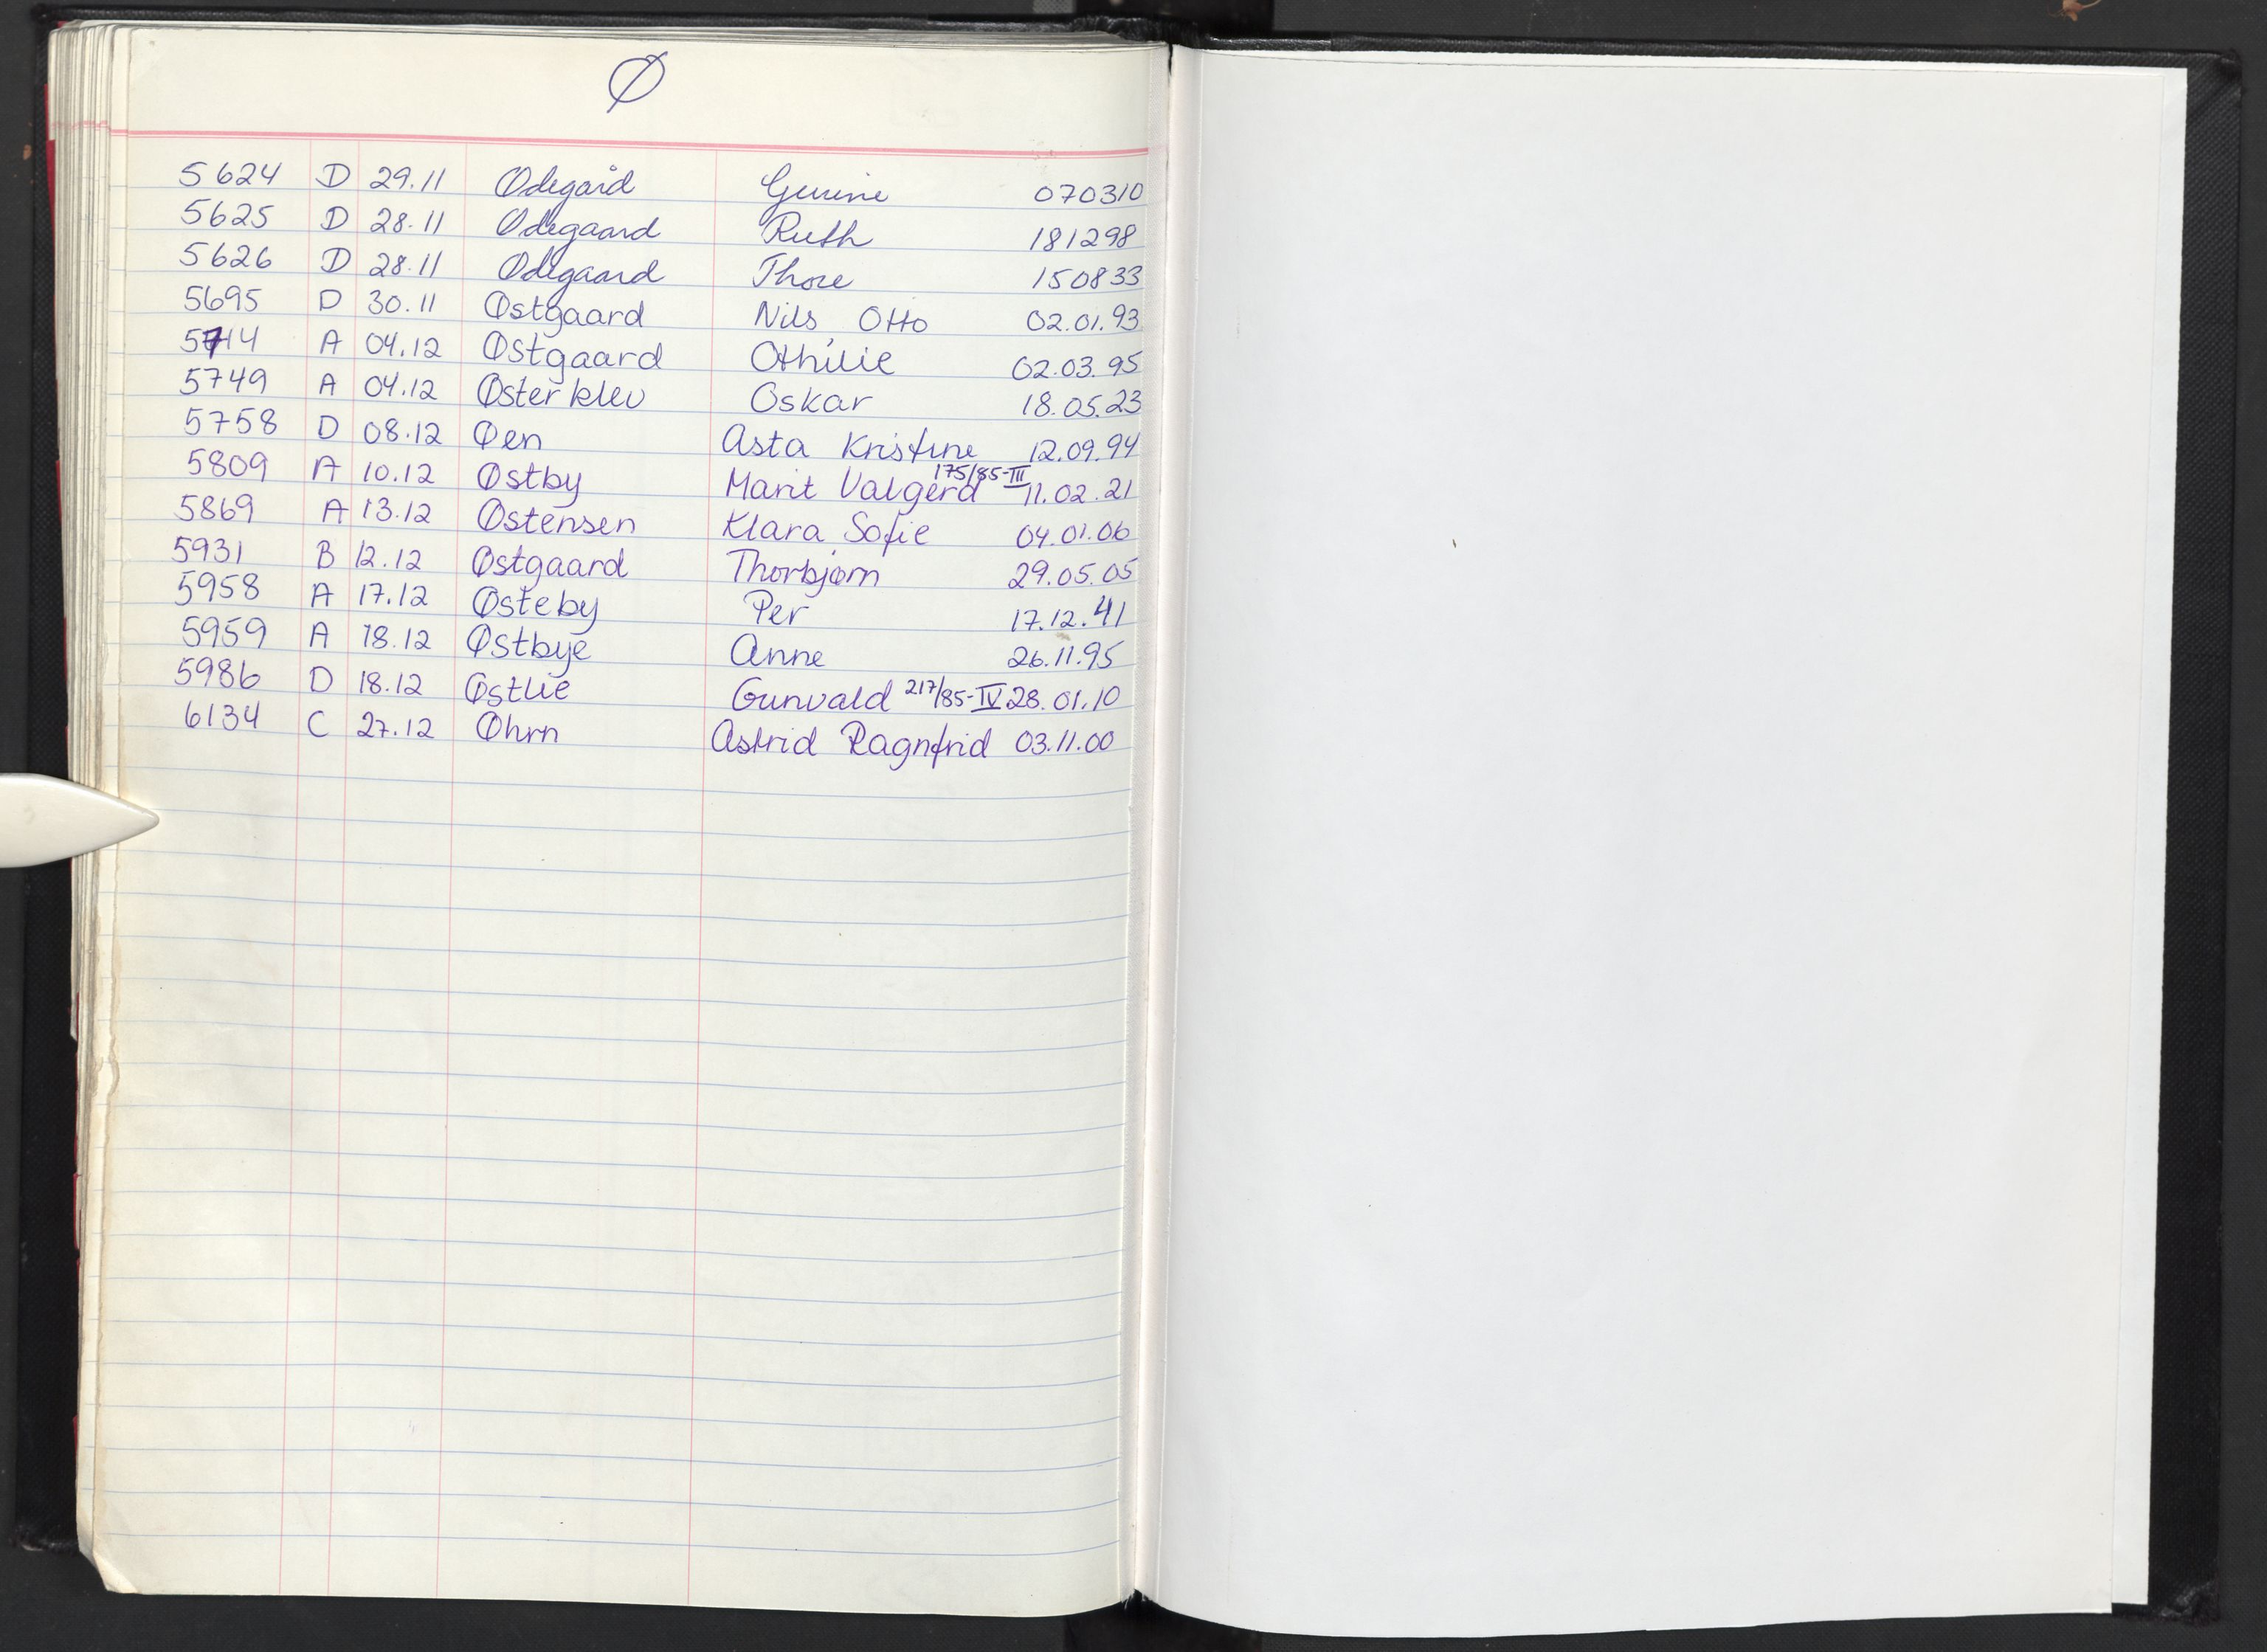 Ø
5624 D 29.11 Ødegård 070310
5625 D 28.11 Ødegaard Ruth 181298
5626 D 28.11 Ødegaard Thore 150833
5695 D 30.11 Østgaard Nils Otto 02.01.93
5714 A 04.12 Østgaard Othilie 02.03.95
5749 A 04.12 Østerklev Oskar 18.05.23
5758 D 08.12 Øen Asta Kristine 12.09.94
5809 A 10.12 Østby Marit Valgerd 175/85-III 11.02.21
5869 A 13.12 Østensen Klara Sofie 04.01.06
5931 B 12.12 Østgaard Thorbjørn 29.05.05
5958 A 17.12 Østeby Per 17.12.41
5959 A 18.12 Østbye Anne 26.11.95
5986 D 18.12 Østlie Gunvald 217/85-IV 28.01.10
6134 C 27.12 Øhrn Astrid Ragnfrid 03.11.00